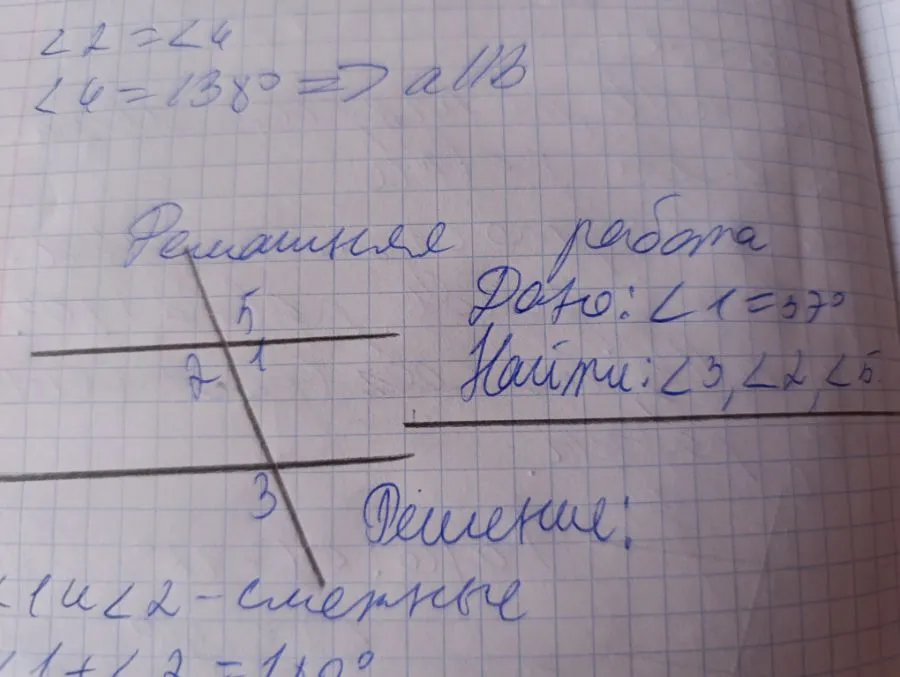 ∠2 = ∠4
∠4 = 138° => a||b
Домашняя работа
5
Дано: ∠1 = 37°
1
2
Найти: ∠3, ∠2, ∠5
3
Решение:
∠1 и ∠2 - смежные
∠1 + ∠2 = 180°